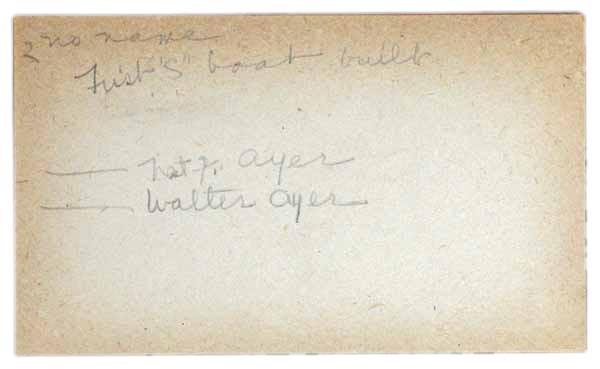 2 no name
First "S" boat built
— Nat F. Ayer
— Walter Ayer